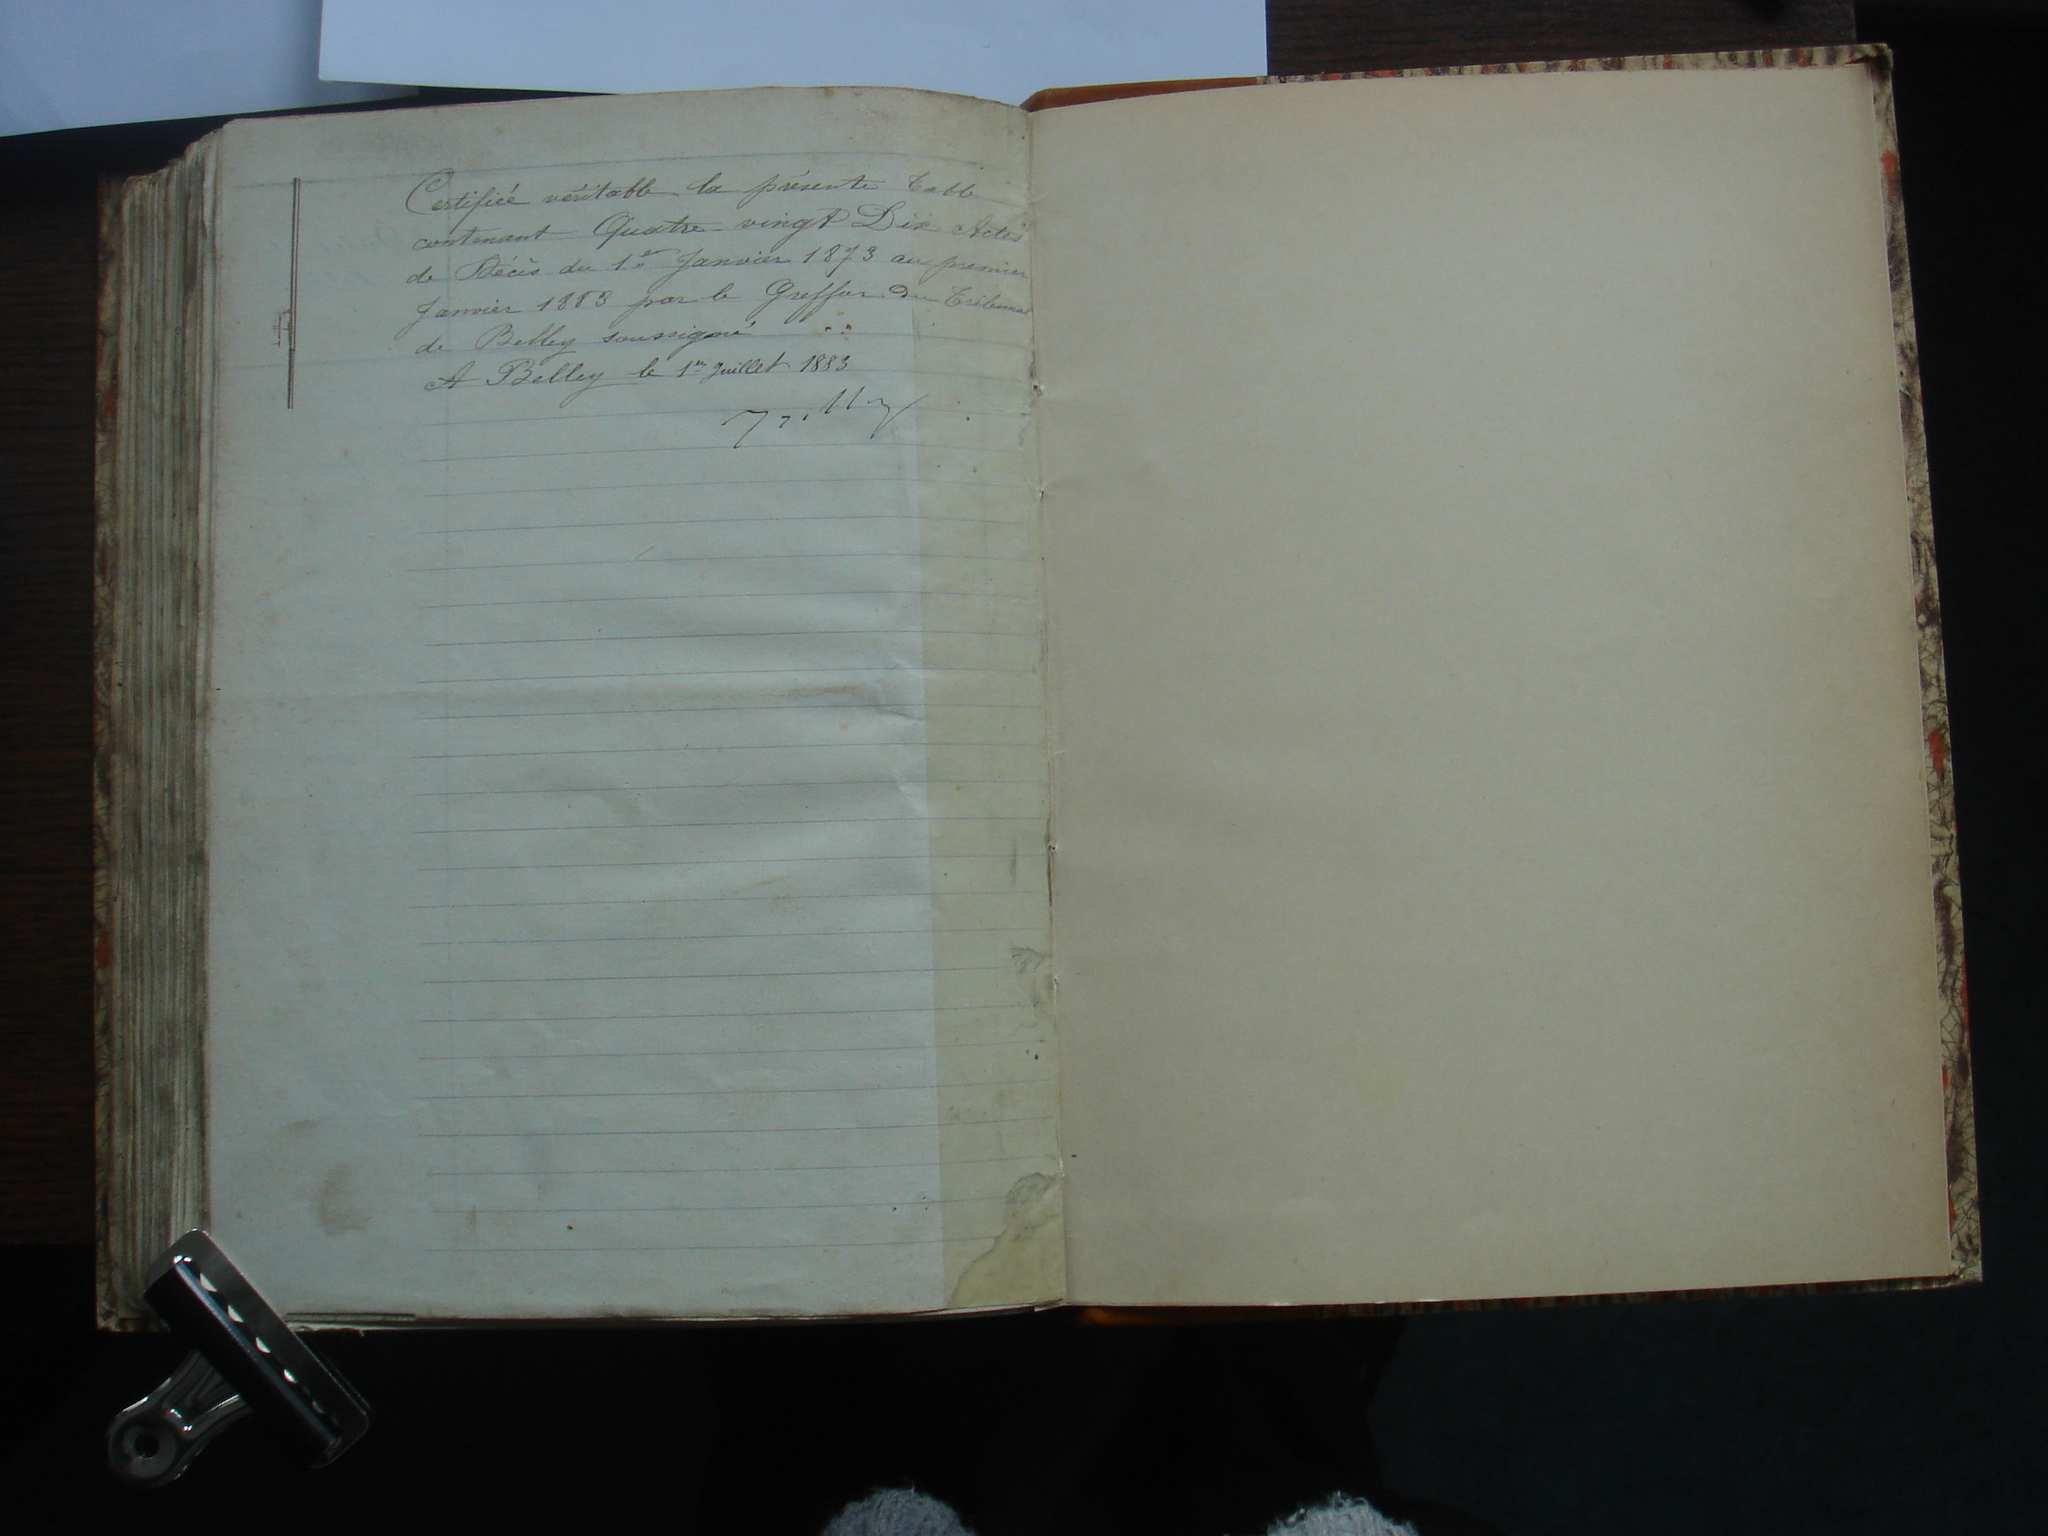 Certifiée véritable la présente Table
contenant Quatre-vingt Dix Actes
de Décès du 1er Janvier 1873 au premier
Janvier 1883 par le Greffier du Tribunal
de Belley soussigné
A Belley le 1er Juillet 1883